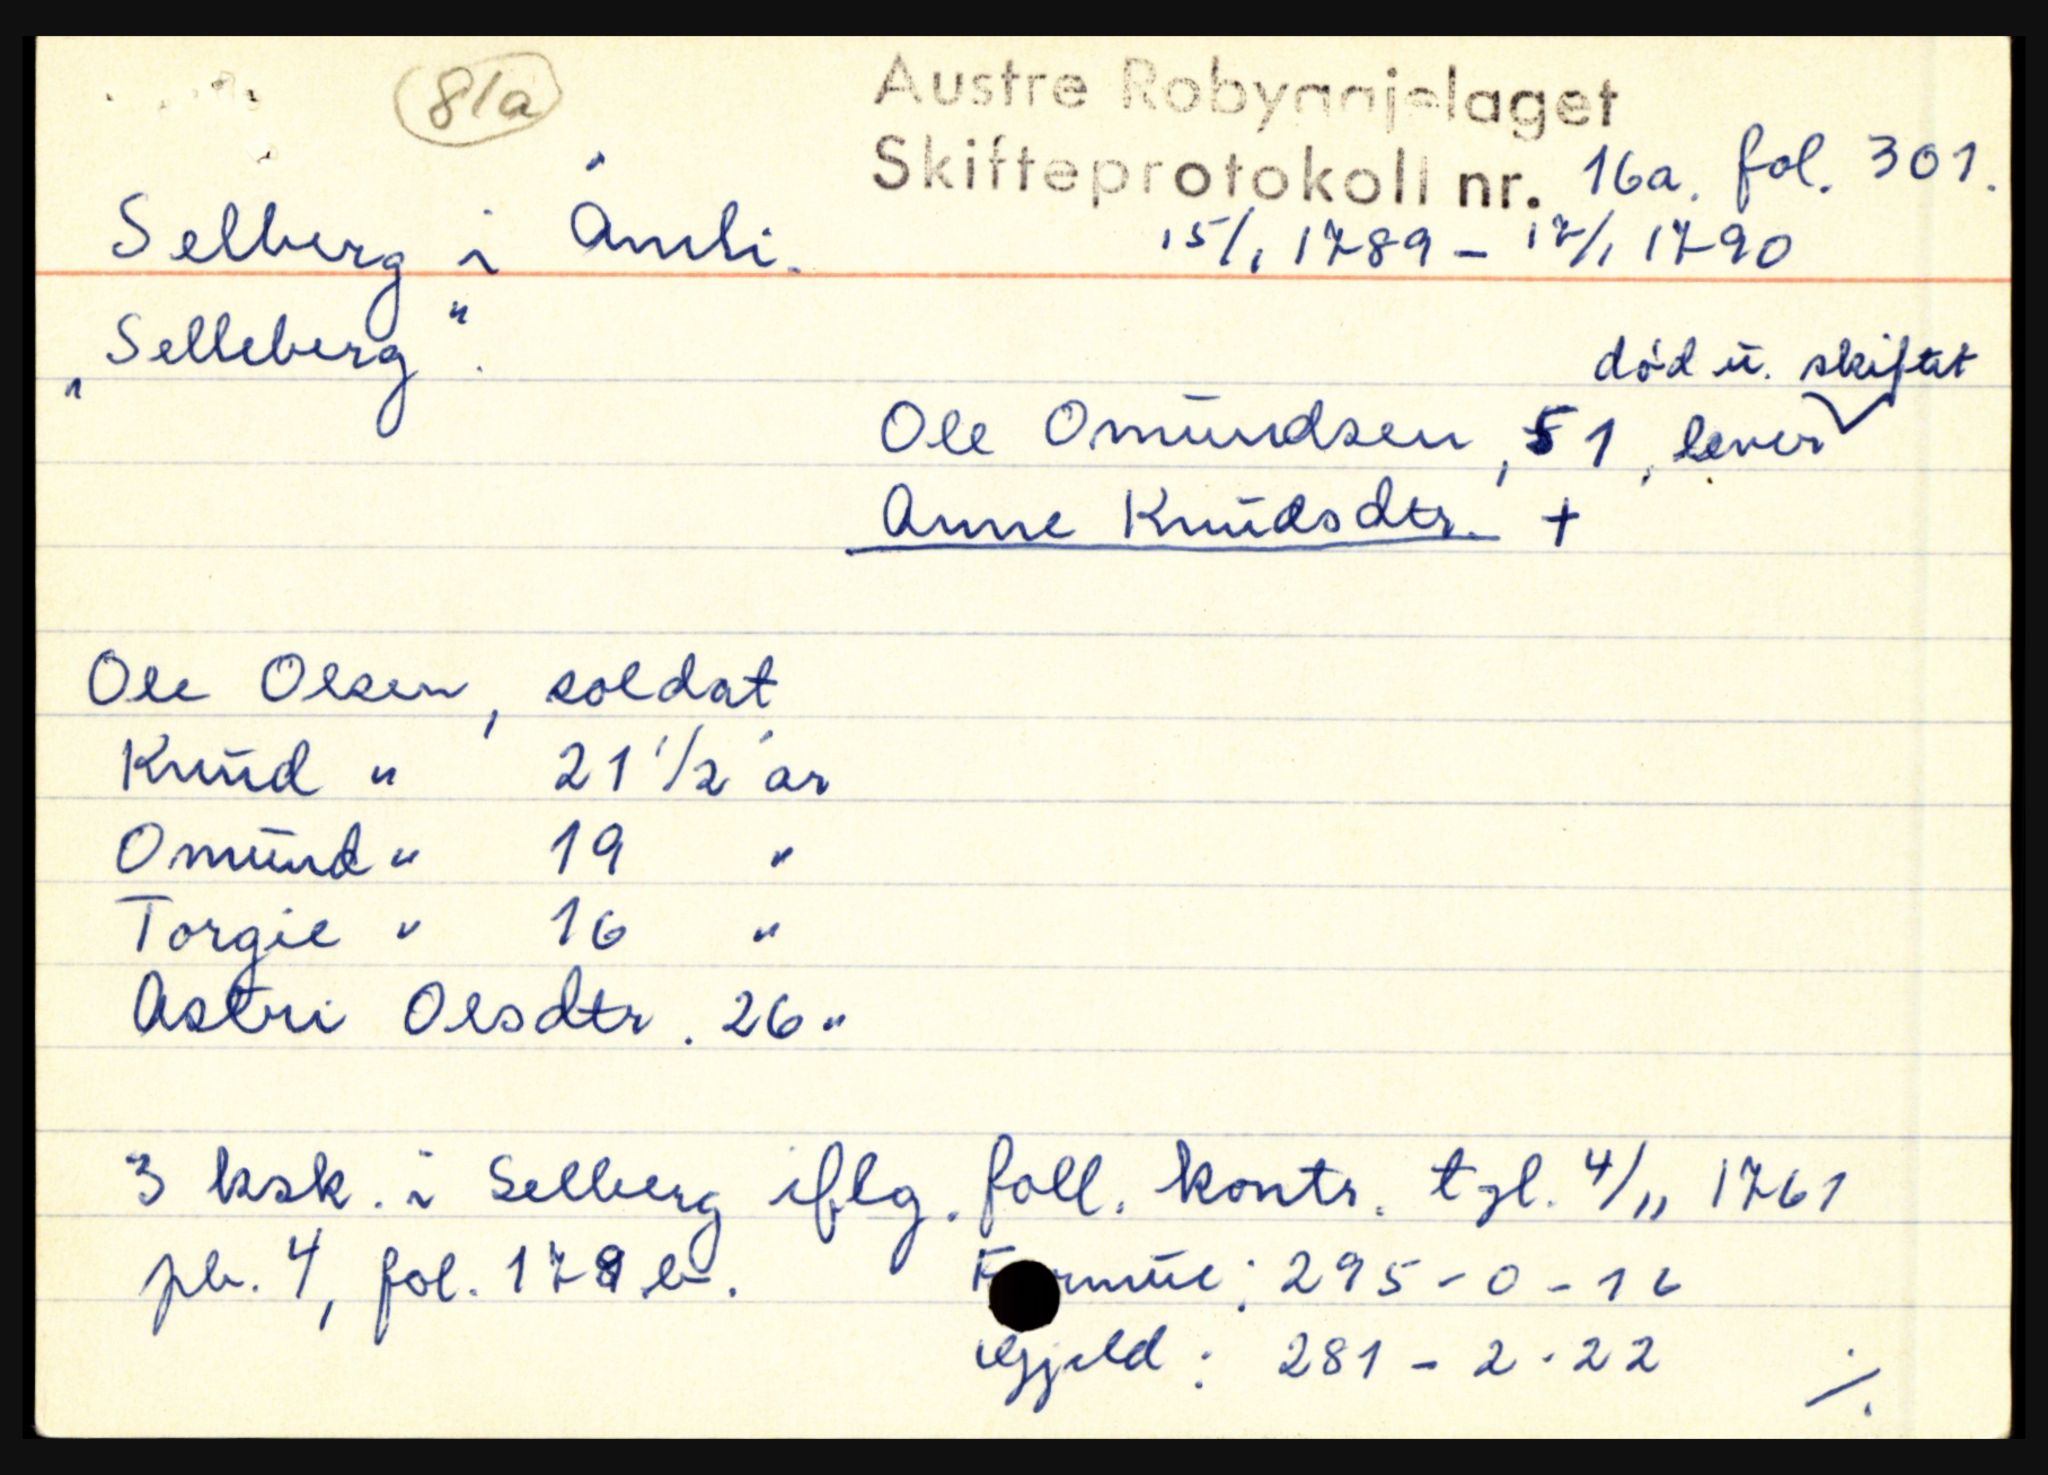 81a
Austre Robyggjelaget
Skifteprotokoll nr. 16a. fol. 301.
Selberg i Åmli. 15/1 1789 - 17/1 1790
"Selleberg".
død u. skiftet
Ole Omundsen, 51, lever
Anne Knudsdtr. +
Ole Olsen, soldat
Knud " 21 1/2 år
Omund " 19 "
Torgie " 16 "
Astri Olsdtr. 26 "
3 ksk. i Selberg iflg. foll. kontr. tgl. 4/11 1761
pb. 4, fol. 179 b. Formue: 295 - 0 - 16
Gjeld: 281 - 2 - 22